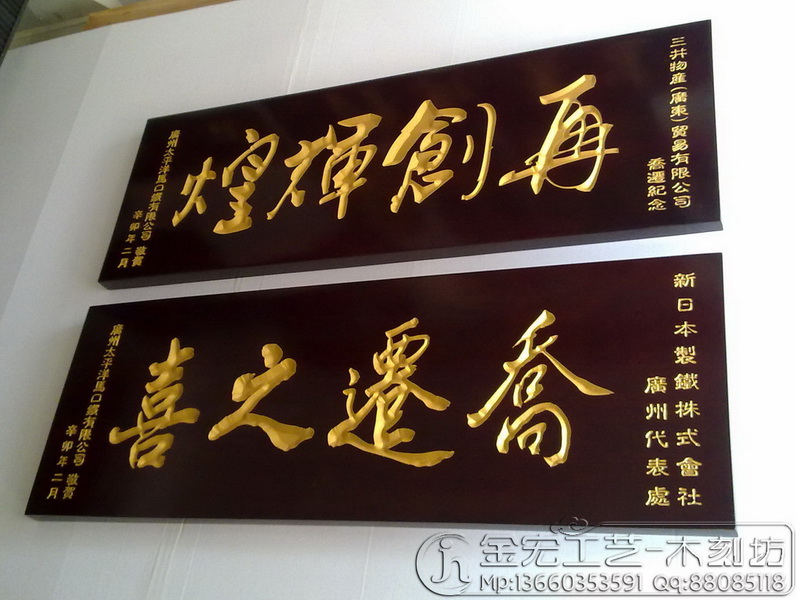 三井物產(廣東)貿易有限公司
喬遷紀念
再創輝煌
廣州太平洋馬口鐵有限公司 敬賀
辛卯年二月
新日本製鐵株式會社
廣州代表處
喬遷之喜
廣州太平洋馬口鐵有限公司 敬賀
辛卯年二月
金宏工艺-木刻坊
Mp:13660353591 QQ:88085118